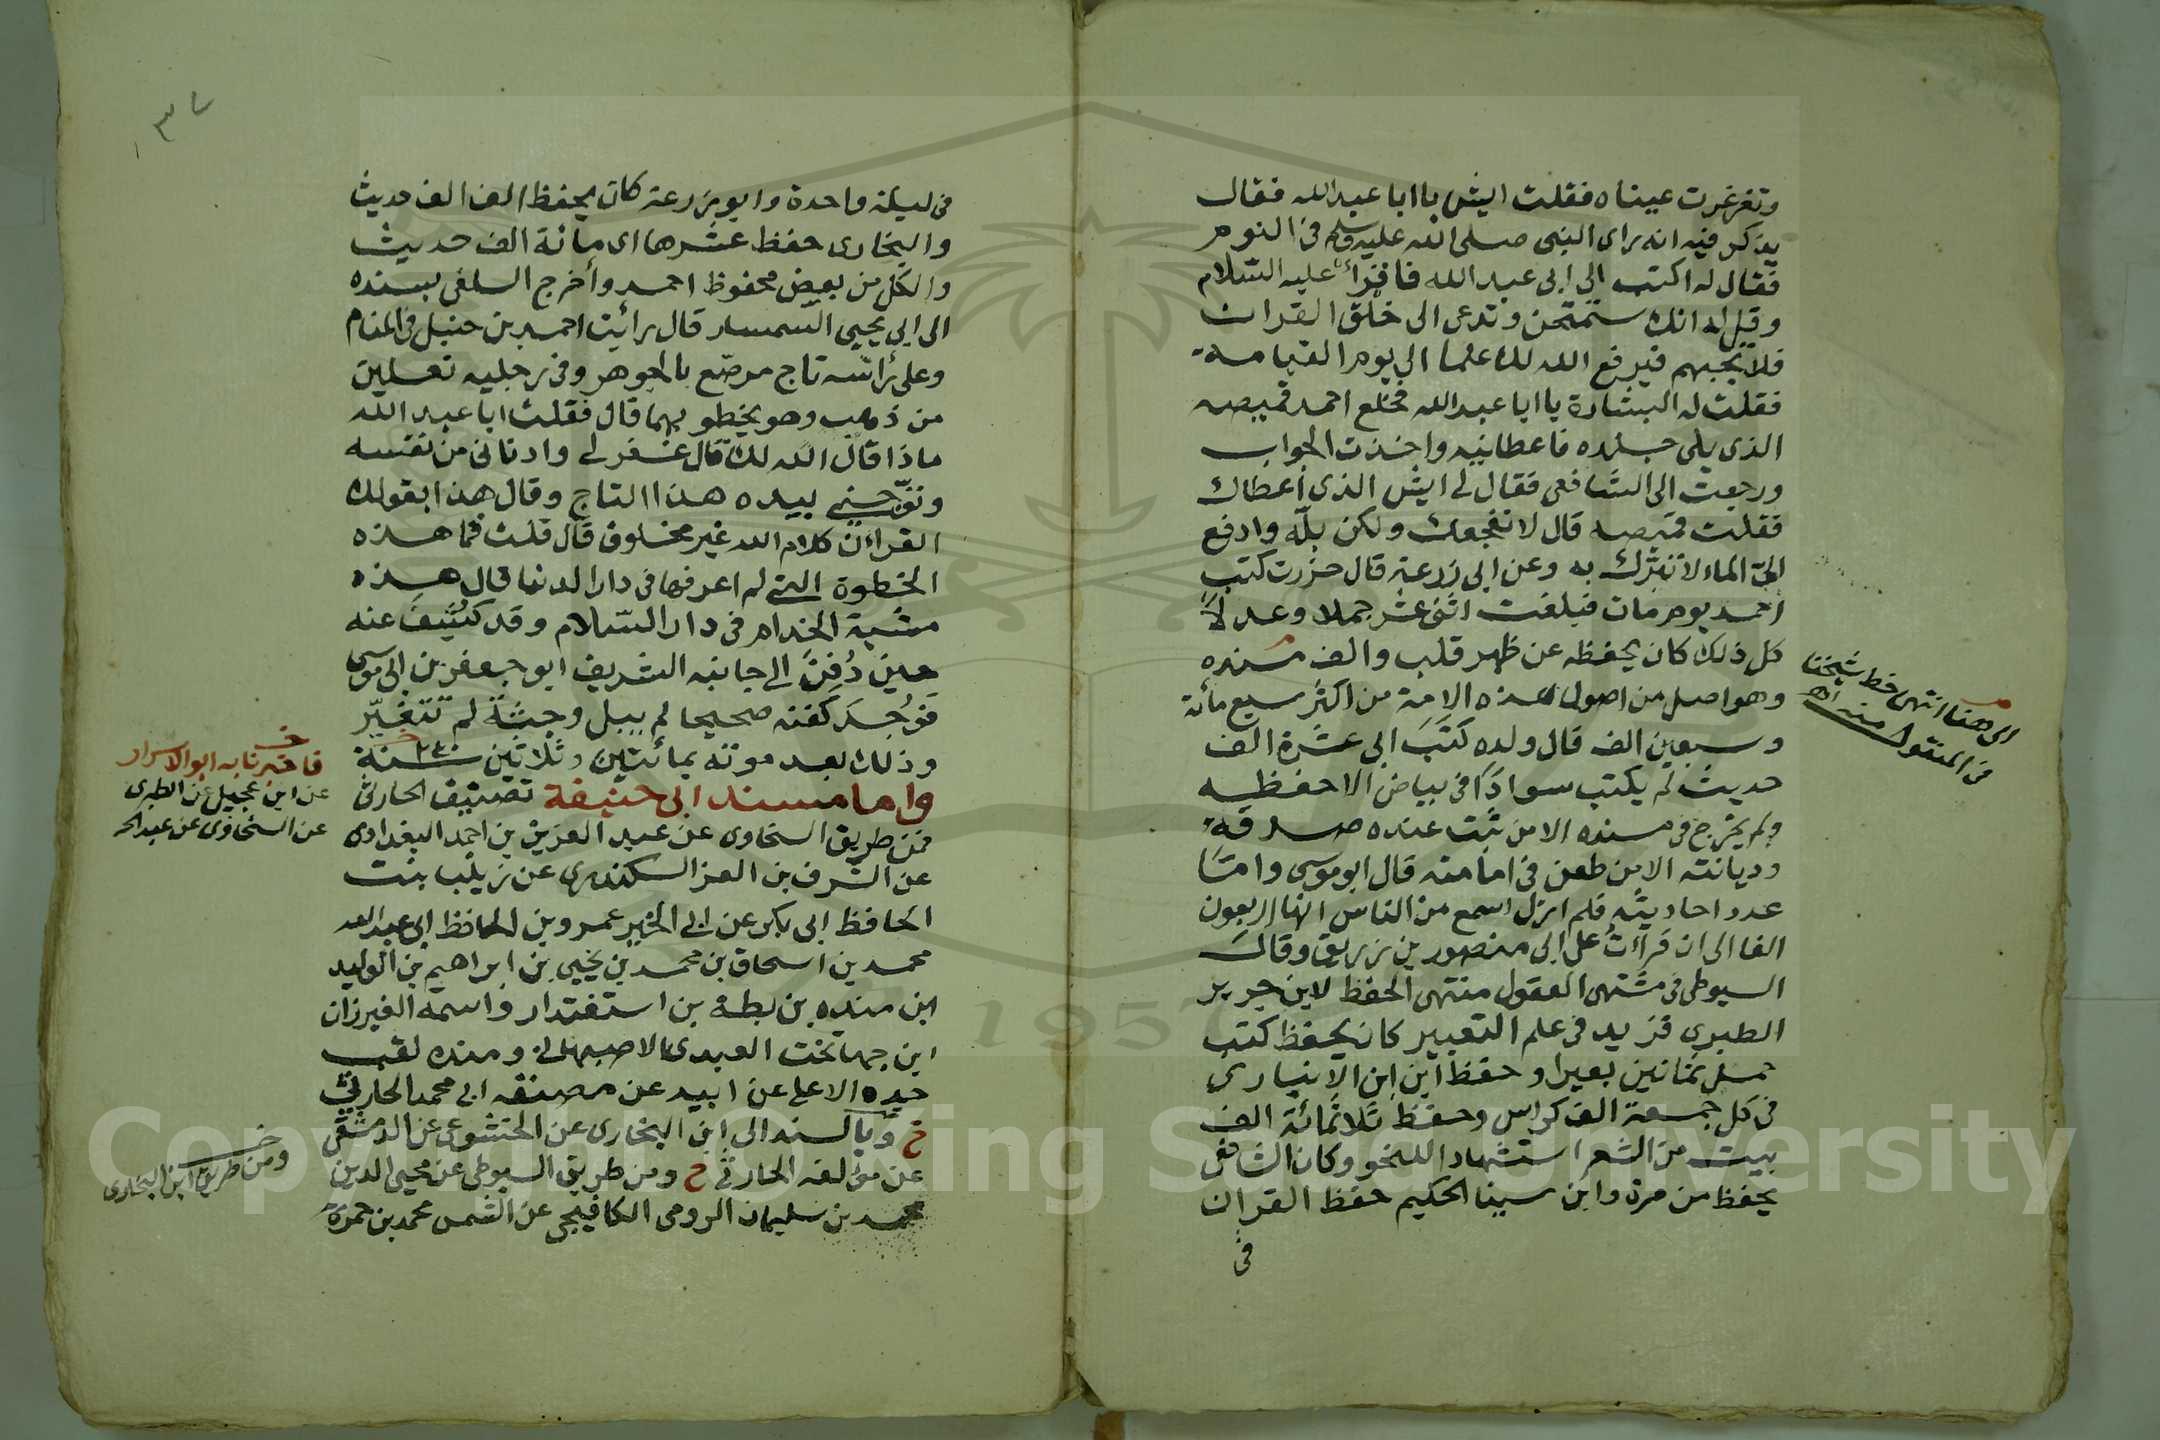 وتغرغرت عيناه فقلت ايش يا ابا عبد الله فقال
يذكر فيه انه راى النبى صلى الله عليه وسلم فى النوم
فقال له اكتب الى ابى عبد الله فاقرأ عليه السّلام
وقيل له انك ستمتحن وتدعى الى خلق القران
فلا تجبهم فيرفع الله لك علما الى يوم القيامة
فقلت له البشارة يا ابا عبد الله فخلع احمد قميصه
الذى يلى جلده فاعطانيه واخذت الجواب
ورجعت الى الشافعى فقال لى ايش الذى أعطاك
فقلت قميصه قال لا نفجعك ولكن بلّه وادفع
الىّ الماء لاتبرّك به وعن ابى زرعة قال حزرت كتب
أحمد يوم مات فبلغت اثنى عشر جملا وعدلا
كل ذلك كان يحفظه عن ظهر قلب والف مسنده
وهو اصل من اصول هذه الامة من اكثر سبع مأئة
وسبعين الف قال ولده كتب ابى عشرة الف
حديث لم يكتب سوادًا فى بياض الا حفظه
ولم يخرج فى مسنده الا من ثبت عنده صدقه
وديانته الا من طعن فى امامته قال ابو موسى وامّا
عدد احاديثه فلم ازل اسمع من الناس انها اربعون
الفا الى ان قرأتُ على ابى منصور بن زريق وقال
السيوطى فى مشتهى العقول منتهى الحفظ لابن جرير
الطبرى فزيد فى علم التعبير كان يحفظ كتب
حمل ثمانين بعيرا وحفظ ابن الانبارى
فى كل جمعة الف كراس وحفظ ثلاثمائة الف
بيت من الشعر استشهادا للنحو وكان الشافعى
يحفظ من مرة وابن سينا الحكيم حفظ القران
فى
الى هنا انتهى خط شيخنا
من المنقول منه اهـ
٣٧
فى ليلة واحدة وابو زرعة كان يحفظ الف الف حديث
والبخارى حفظ عشرها اى مائة الف حديث
والكل من بعض محفوظ احمد وأخرج السلفى بسنده
الى ابى يحيى السّمسار قال رأيت احمد بن حنبل فى المنام
وعلى رأسه تاج مرصّع بالجوهر وفى رجليه نعلين
من ذهب وهو يخطو بهما قال فقلت ابا عبد الله
ماذا قال الله لك قال غفر لى وادنانى من نفسه
وتوّجنى بيده هذا التاج وقال هذا بقولك
القرآن كلام الله غير مخلوق قال قلت فما هذه
الخطوة التى لم اعرفها فى دار الدنيا قال هذه
مشية الخدام فى دار السّلام وقد كُشِفَ عنه
حين دُفِنَ الى جانبه الشريف ابو جعفر بن ابى موسى
فَوُجِدَ كفنه صحيحا لم يبل وجثّة لم تتغيّر
وذلك بعد موته بمائتين وثلاثين سنة ٢٣٠
واما مسند ابى حنيفة تصنيف الحارثى
فمن طريق السخاوى عن عبد العزيز بن احمد البغدادى
عن الشرف بن العز السكندرى عن زينب بنت
الحافظ ابى بكر عن ابى الخير عمرو بن الحافظ ابى عبد الله
محمد بن اسحاق بن محمد بن يحيى بن ابراهيم بن الوليد
ابن منده بن بطة بن استفتدار واسمه الفيرزان
ابن جهانخت العبدى الاصبهانى ومنده لقب
جده الاعلى عن ابيه عن مصنفه ابى محمد الحارثى
ح وبالسند الى ابن البخارى عن الخشوعى عن الدمشقى
عن مؤلفه الحارثى ح ومن طريق السيوطى عن محيى الدين
محمد بن سليمان الرومى الكافيجى عن الشمس محمد بن حمزة
فاخبرنا به ابو الاسرار
عن ابن عجيل عن الطبرى
عن السخاوى عن عبد الحـ
ومن طريق ابن البخارى
1957
Copyright © King Saud University